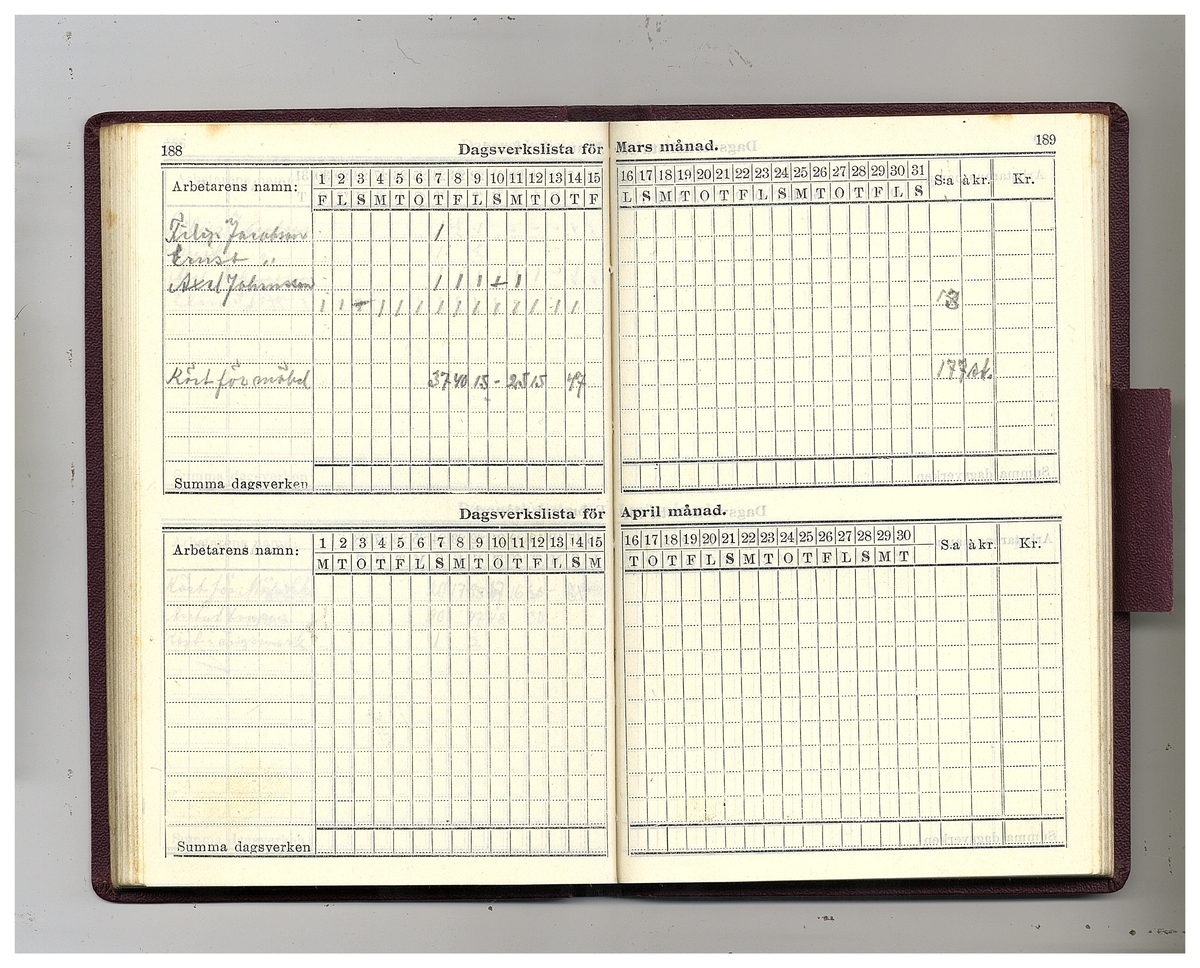 188
Dagsverkslista för Mars månad.
189
Arbetarens namn: 1 2 3 4 5 6 7 8 9 10 11 12 13 14 15 16 17 18 19 20 21 22 23 24 25 26 27 28 29 30 31 S:a à kr. Kr.
F L S M T O T F L S M T O T F L S M T O T F L S M T O T F L S
Filip Jacobsen 1
Ernst "
Axel Johnsson 1 1 1 1
1 1 - 1 1 1 1 1 1 1 1 1 1 1
Kört för möbel 37 40 15 - 25 15 47 177 st.
Summa dagsverken
Dagsverkslista för April månad.
Arbetarens namn: 1 2 3 4 5 6 7 8 9 10 11 12 13 14 15 16 17 18 19 20 21 22 23 24 25 26 27 28 29 30 S:a à kr. Kr.
M T O T F L S M T O T F L S M T O T F L S M T O T F L S M T
Kört för
Summa dagsverken